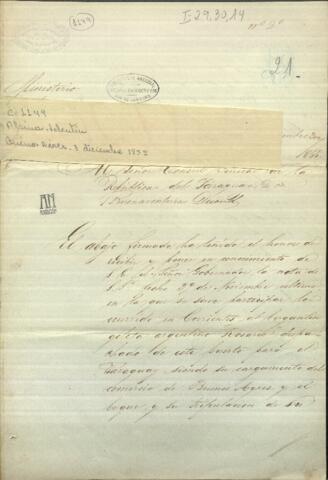 8149
I-29,30,14
nº 2º
21.
Ministerio
C. 1149
Alsina, Valentin
Buenos Aires - 3 diciembre 1855
Al Señor Consul General de la
Republica del Paraguay Dn
Buenaventura Decoud
El abajo firmado ha tenido el honor de
recibir y poner en conocimiento de
S. E. el Señor Gobernador la nota de
V.S. fecha 29 de Noviembre ultimo
en la que se sirve participar lo
ocurrido en Corrientes al bergantin
goleta argentino Rosario despa-
chado de este puerto para el
Paraguay, siendo su cargamento del
comercio de Buenos Ayres y el
buque y su tripulacion de su